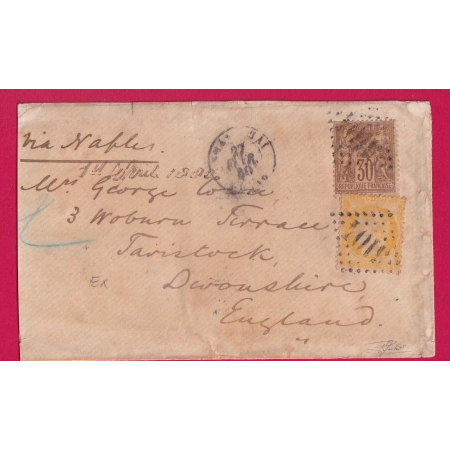 via Naples.
1st 188
Mrs George
3 Woburn Terrace
Tavistock,
Devonshire,
England.
Ex
30
REPUBLIQUE FRANÇAISE